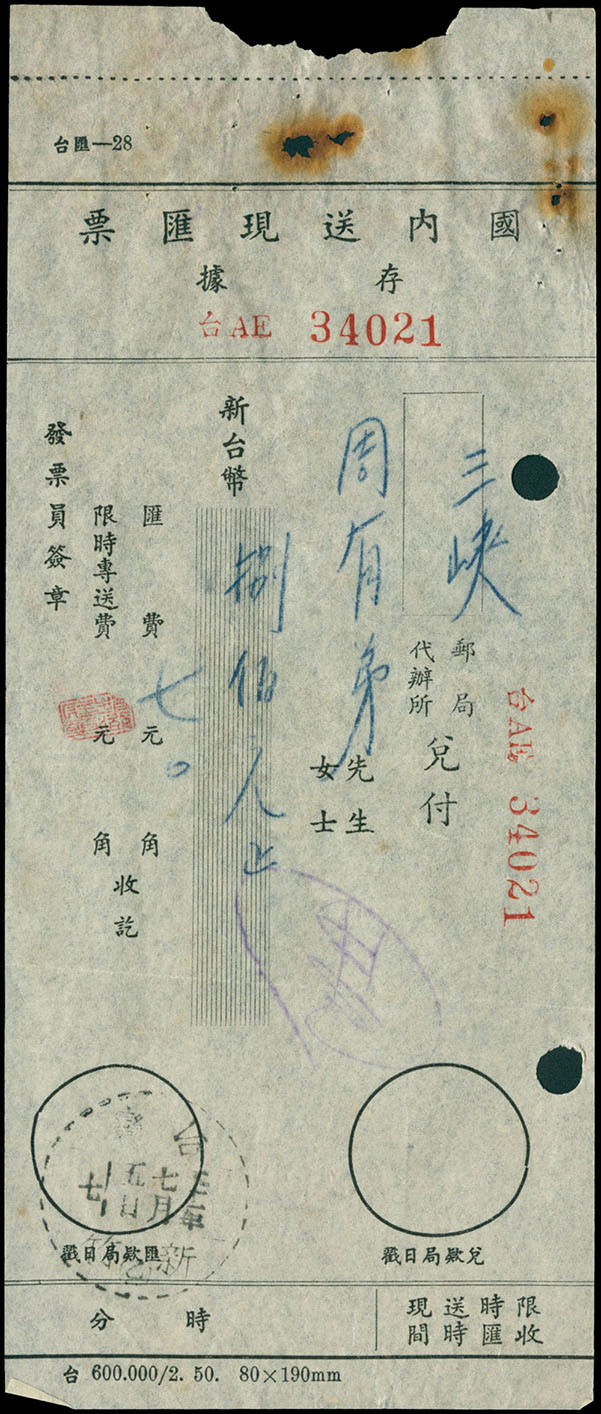 台匯—28
國內送現匯票
存據
台AE 34021
台AE 34021
三峽
郵局
代辦所
兌付
周有弟
先生
女士
新台幣
捌佰元止
匯費 七元 角
限時專送費 元 角
收訖
發票員簽章
台
新
七月
五日
匯欵局日戳
兌欵局日戳
限時送現
收匯時間
時 分
台 600.000/2. 50. 80×190mm